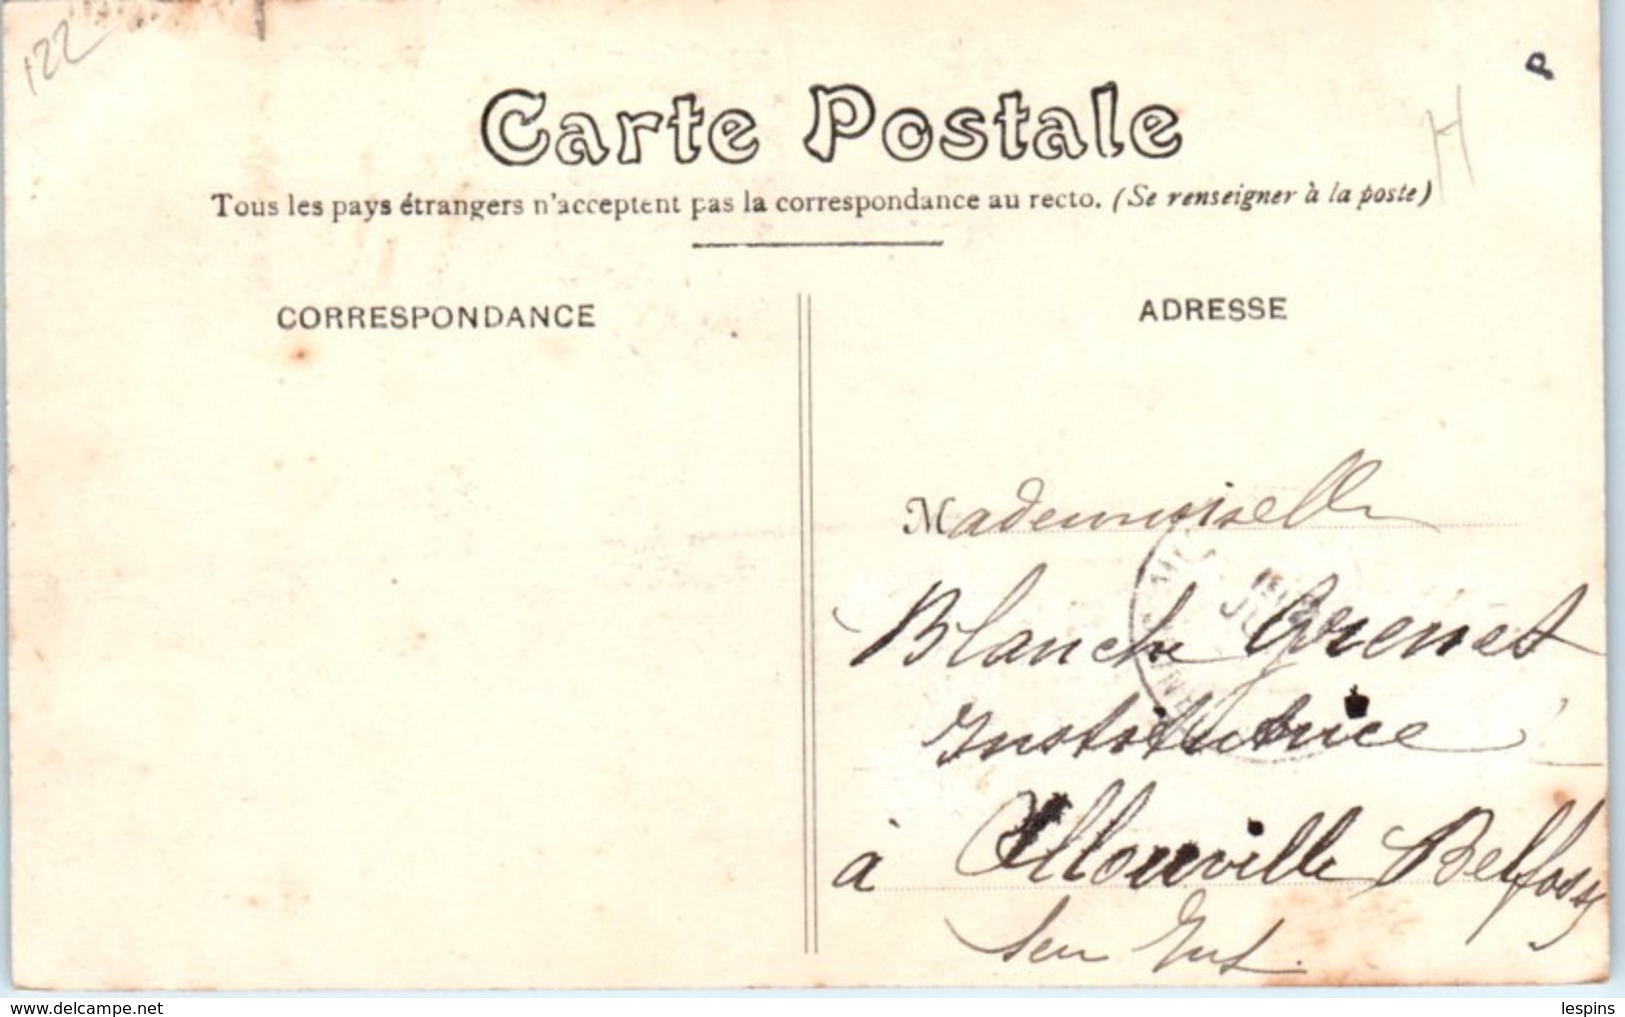 122
P
H
Carte Postale
Tous les pays étrangers n'acceptent pas la correspondance au recto. (Se renseigner à la poste)
CORRESPONDANCE
ADRESSE
Mademoiselle
Blanche Grenet
Institutrice
à Allouville Bellfoss
Sen Inf.
lespins